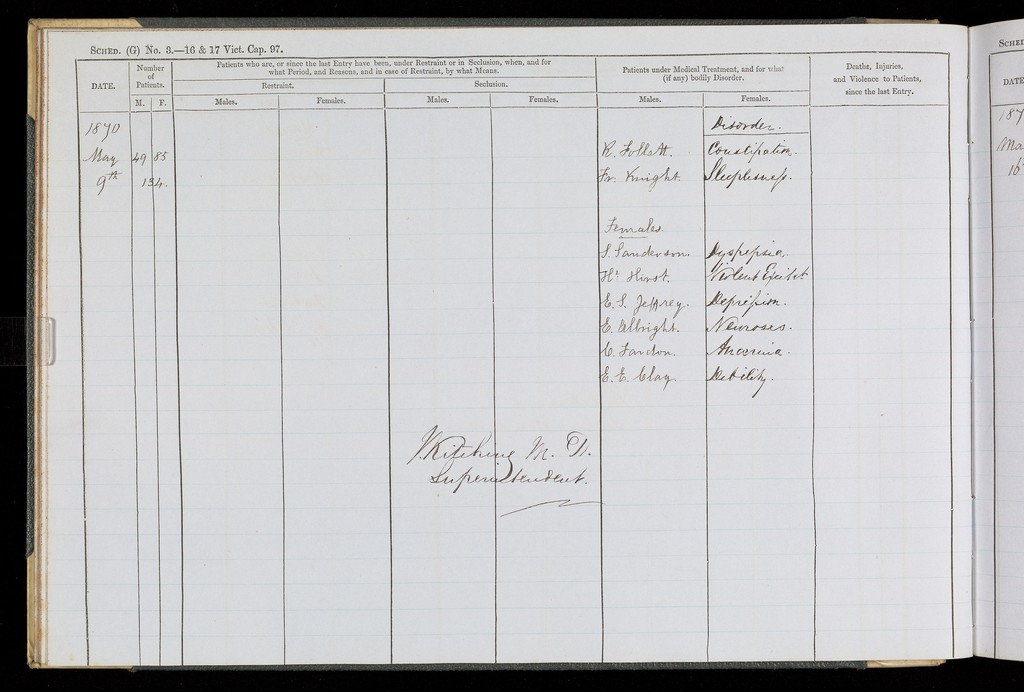 SCHED. (G) No. 3.—16 & 17 Vict. Cap. 97.
DATE.
Number of Patients.
M. F.
Patients who are, or since the last Entry have been, under Restraint or in Seclusion, when, and for
what Period, and Reasons, and in case of Restraint, by what Means.
Restraint. Seclusion.
Males. Females. Males. Females.
Patients under Medical Treatment, and for what
(if any) bodily Disorder.
Males. Females.
Deaths, Injuries,
and Violence to Patients,
since the last Entry.
1870 Disorder.
May 49 85 R. Follett. Constipation.
9th 134. Fr. Knight. Sleeplessness.
Females.
S. Sanderson. Dyspepsia.
Ht. Hirst. Violent Excitt
E. S. Jeffrey. Depression.
E. Albright. Neuroses.
C. Fardon. Anoemia.
E. E. Clay. Debility.
J. Kitching M.D.
Superintendent.
SCHED
DATE
187
Ma
16